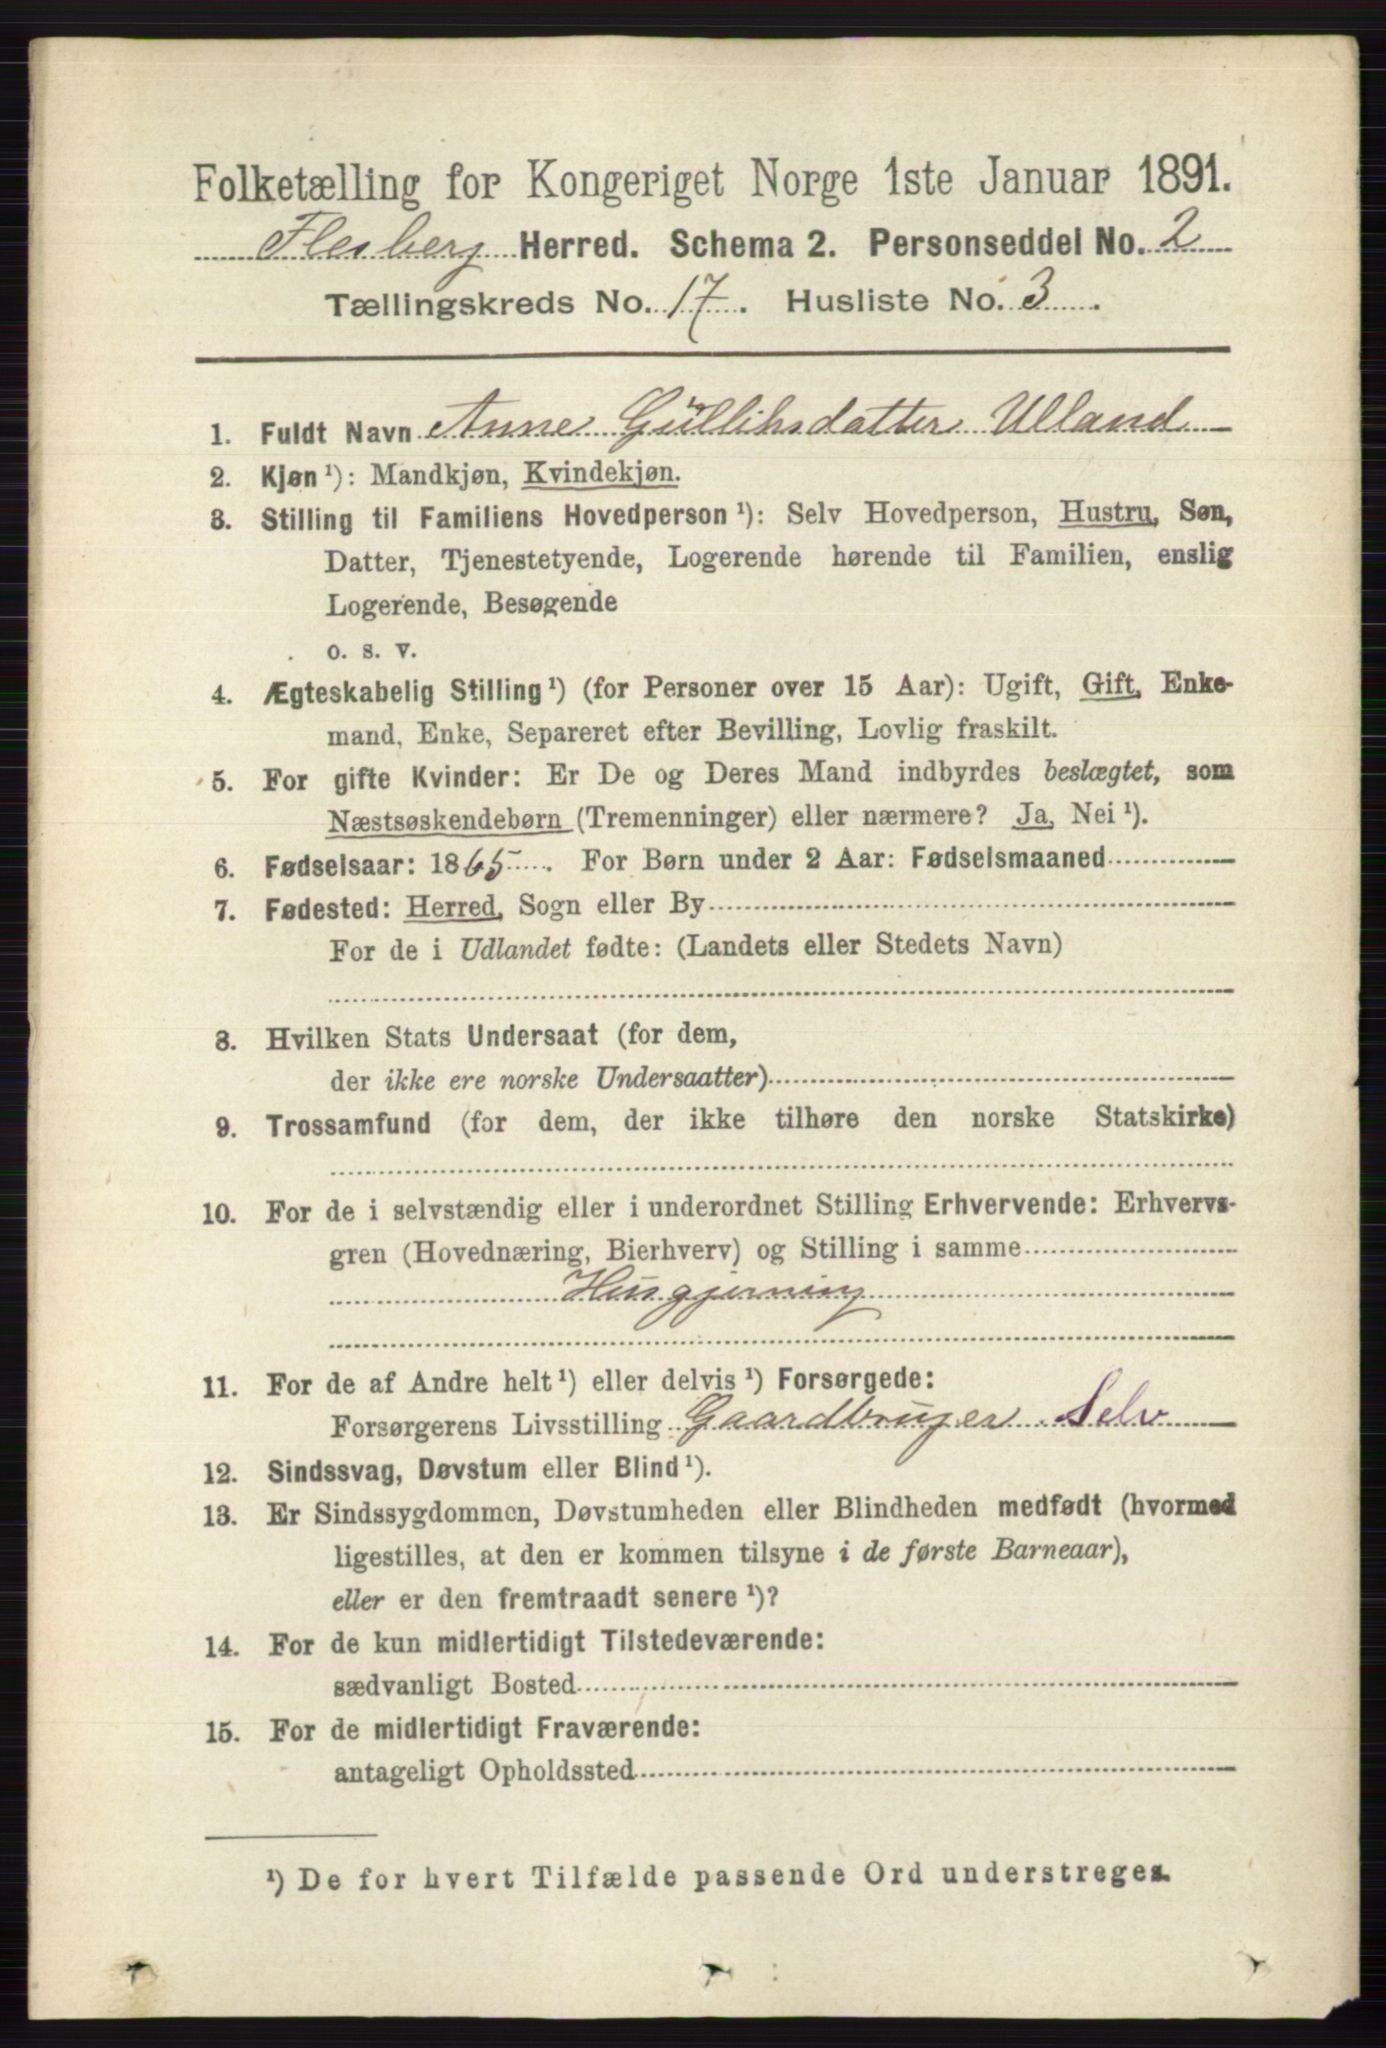 Folketælling for Kongeriget Norge 1ste Januar 1891.
Flesberg Herred. Schema 2. Personseddel No. 2
Tællingskreds No. 17. Husliste No. 3.
1. Fuldt Navn Anne Gülliksdatter Ulland
2. Kjøn ¹): Mandkjøn, Kvindekjøn.
3. Stilling til Familiens Hovedperson ¹): Selv Hovedperson, Hustru, Søn,
Datter, Tjenestetyende, Logerende hørende til Familien, enslig
Logerende, Besøgende
o. s. v.
4. Ægteskabelig Stilling ¹) (for Personer over 15 Aar): Ugift, Gift, Enke-
mand, Enke, Separeret efter Bevilling, Lovlig fraskilt.
5. For gifte Kvinder: Er De og Deres Mand indbyrdes beslægtet, som
Næstsøskendebørn (Tremenninger) eller nærmere? Ja, Nei ¹).
6. Fødselsaar: 1865. For Børn under 2 Aar: Fødselsmaaned
7. Fødested: Herred, Sogn eller By
For de i Udlandet fødte: (Landets eller Stedets Navn)
8. Hvilken Stats Undersaat (for dem,
der ikke ere norske Undersaatter)
9. Trossamfund (for dem, der ikke tilhøre den norske Statskirke)
10. For de i selvstændig eller i underordnet Stilling Erhvervende: Erhvervs-
gren (Hovednæring, Bierhverv) og Stilling i samme
Husgjerning
11. For de af Andre helt ¹) eller delvis ¹) Forsørgede:
Forsørgerens Livsstilling Gaardbruger Selv
12. Sindssvag, Døvstum eller Blind ¹).
13. Er Sindssygdommen, Døvstumheden eller Blindheden medfødt (hvormed
ligestilles, at den er kommen tilsyne i de første Barneaar),
eller er den fremtraadt senere ¹)?
14. For de kun midlertidigt Tilstedeværende:
sædvanligt Bosted
15. For de midlertidigt Fraværende:
antageligt Opholdssted
¹) De for hvert Tilfælde passende Ord understreges.